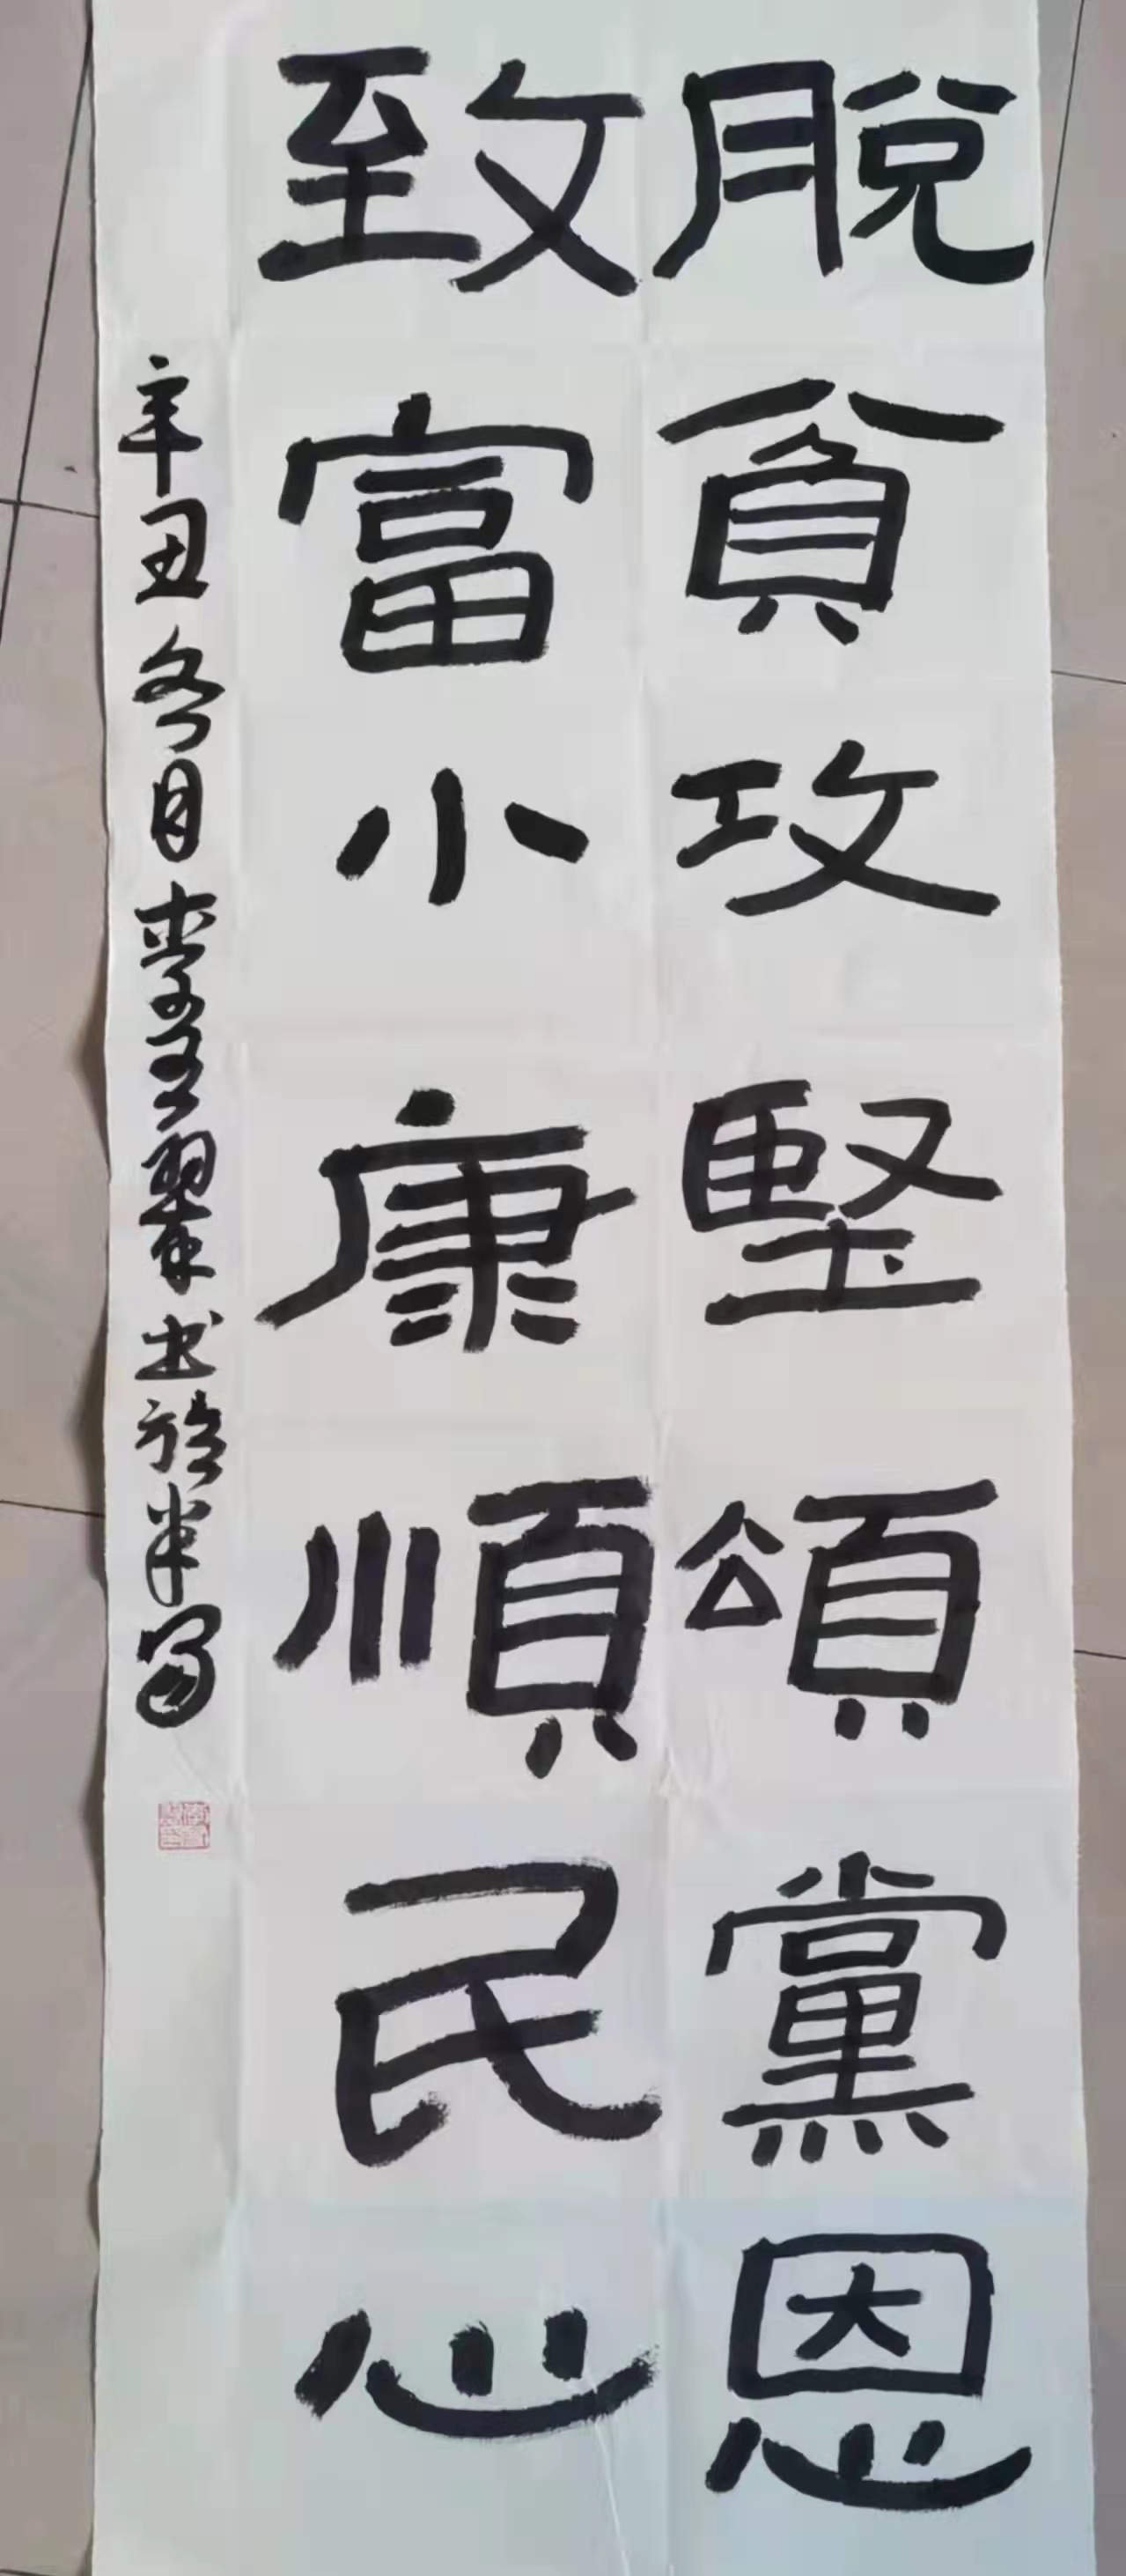 脫貧攻堅頌黨恩
致富小康順民心
辛丑冬月李
翠書於半